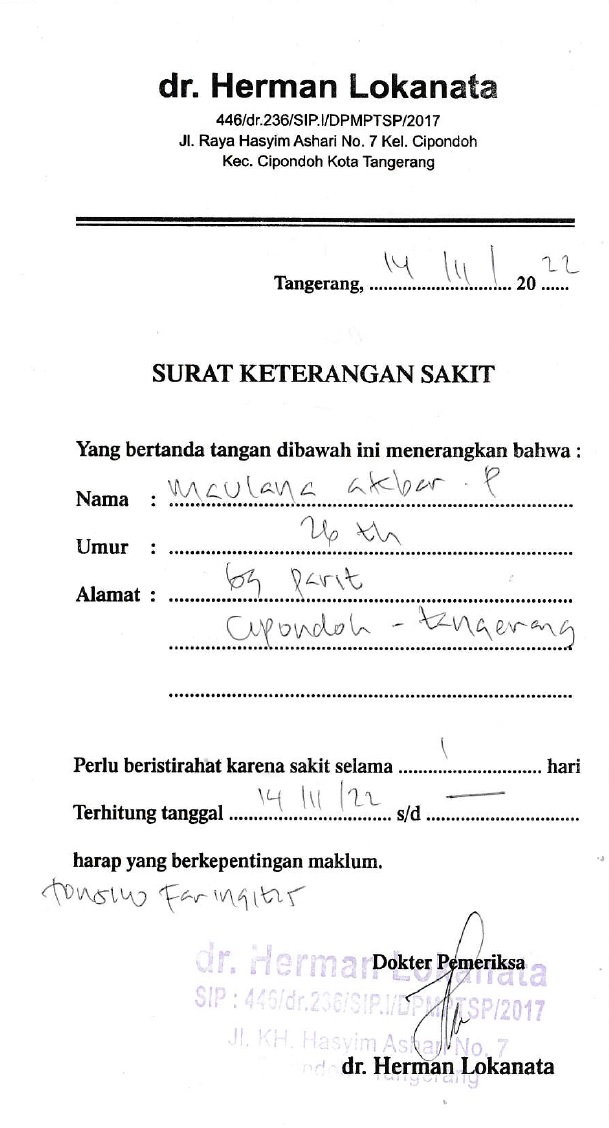 dr. Herman Lokanata
446/dr.236/SIP.I/DPMPTSP/2017
Jl. Raya Hasyim Ashari No. 7 Kel. Cipondoh
Kec. Cipondoh Kota Tangerang
Tangerang, 14 / 11 / 20 22
SURAT KETERANGAN SAKIT
Yang bertanda tangan dibawah ini menerangkan bahwa :
Nama : Maulana akbar . P
Umur : 26 th
Alamat : gg parit
Cipondoh - tangerang
Perlu beristirahat karena sakit selama 1 hari
Terhitung tanggal 14 / 11 / 22 s/d —
harap yang berkepentingan maklum.
Faringitis
dr. Herman Lokanata
Dokter Pemeriksa
SIP : 446/dr.236/SIP.I/DPMPTSP/2017
Jl. KH. Hasyim Ashari No. 7
Tangerang
dr. Herman Lokanata